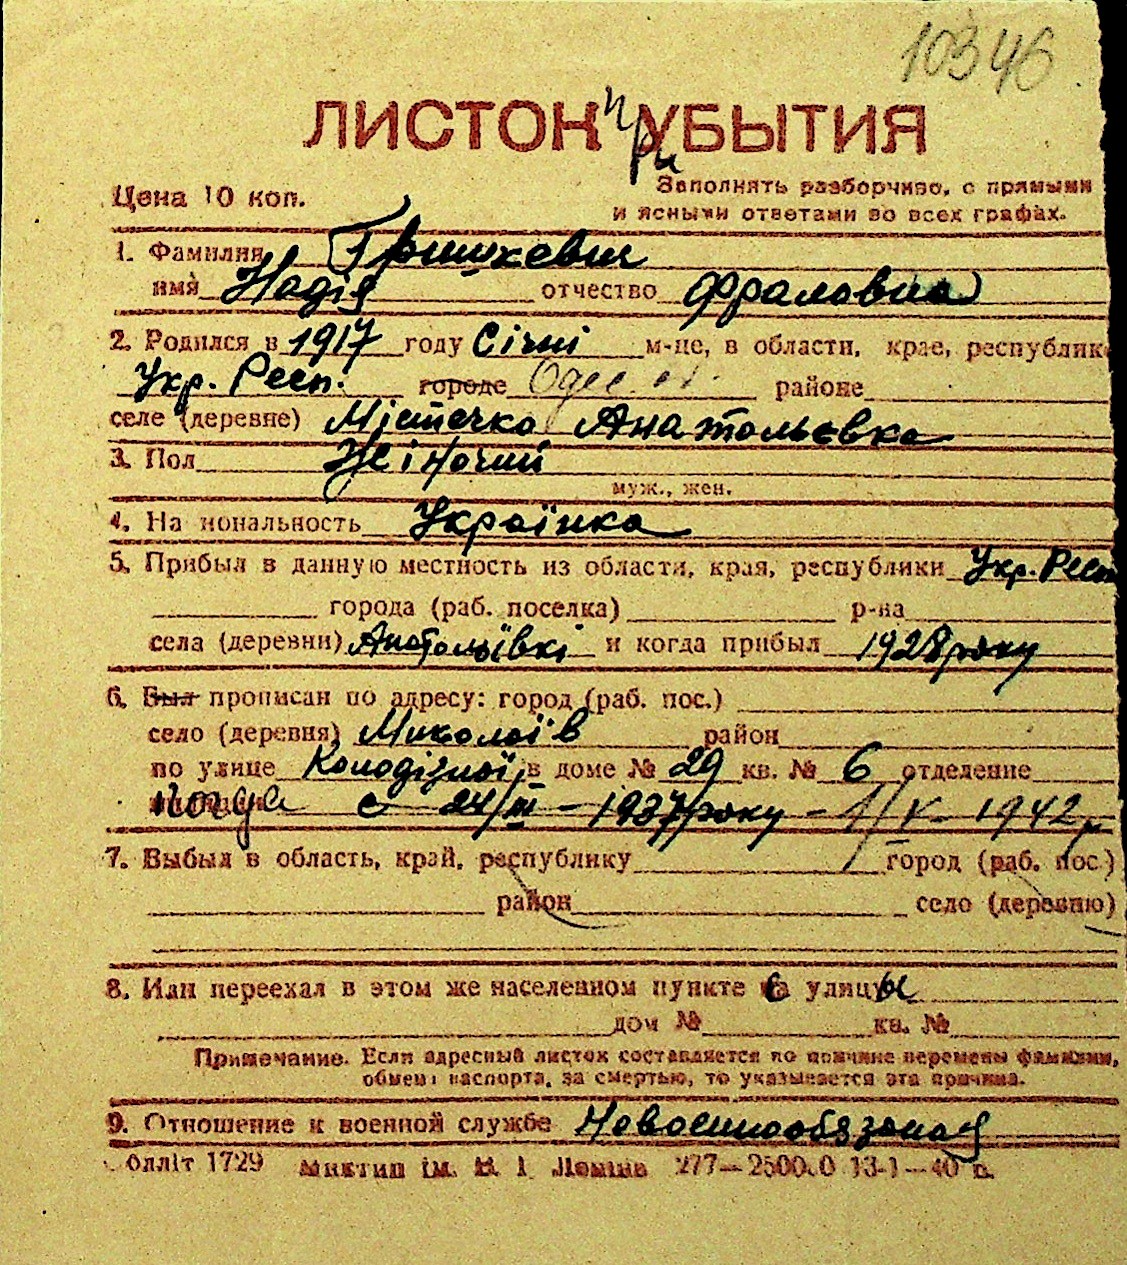 10346
ЛИСТОК при УБЫТИЯ
Цена 10 коп.
Заполнять разборчиво, с прямыми
и ясными ответами во всех графах.
1. Фамилия Гришкевич
имя Надія отчество Фраловна
2. Родился в 1917 году Січні м-це, в области, крае, республик
Укр. Респ. городе Одес. обл. районе
селе (деревне) Містечко Анатольевка
3. Пол Жіночий
муж., жен.
4. На иональность Українка
5. Прибыл в данную местность из области, края, республики Укр. Респ
города (раб. поселка) р-на
села (деревни) Анатольівкі и когда прибыл 1928 року
6. Был прописан по адресу: город (раб. пос.)
село (деревня) Миколаїв район
по улице Колодізної в доме № 29 кв. № 6 отделение
когда с 24/III - 1937 року - 1/V - 1942 р
7. Выбыл в область, край, республику город (раб. пос.)
район село (деревню)
8. Или переехал в этом же населенном пункте с улицы
дом № кв. №
Примечание. Если адресный листок составляется по причине перемены фамилии,
обмена паспорта, за смертью, то указывается эта причина.
9. Отношение к военной службе Невоеннообязаная
олліт 1729 Миктип ім. В. І. Леніна 277—25000 13-1—40 р.